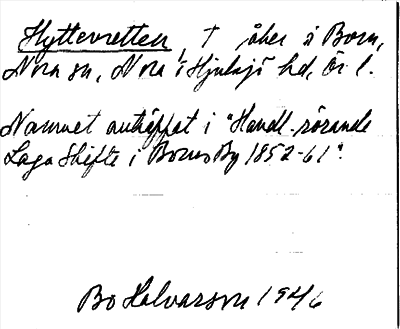 Hyttevretten, † åker i Born,
Nora sn, Nora o Hjulsjö hd, Ör l.
Namnet anträffat i "Handl. rörande
Laga Skifte i Borns By 1852-61".
Bo Halvarson 1946